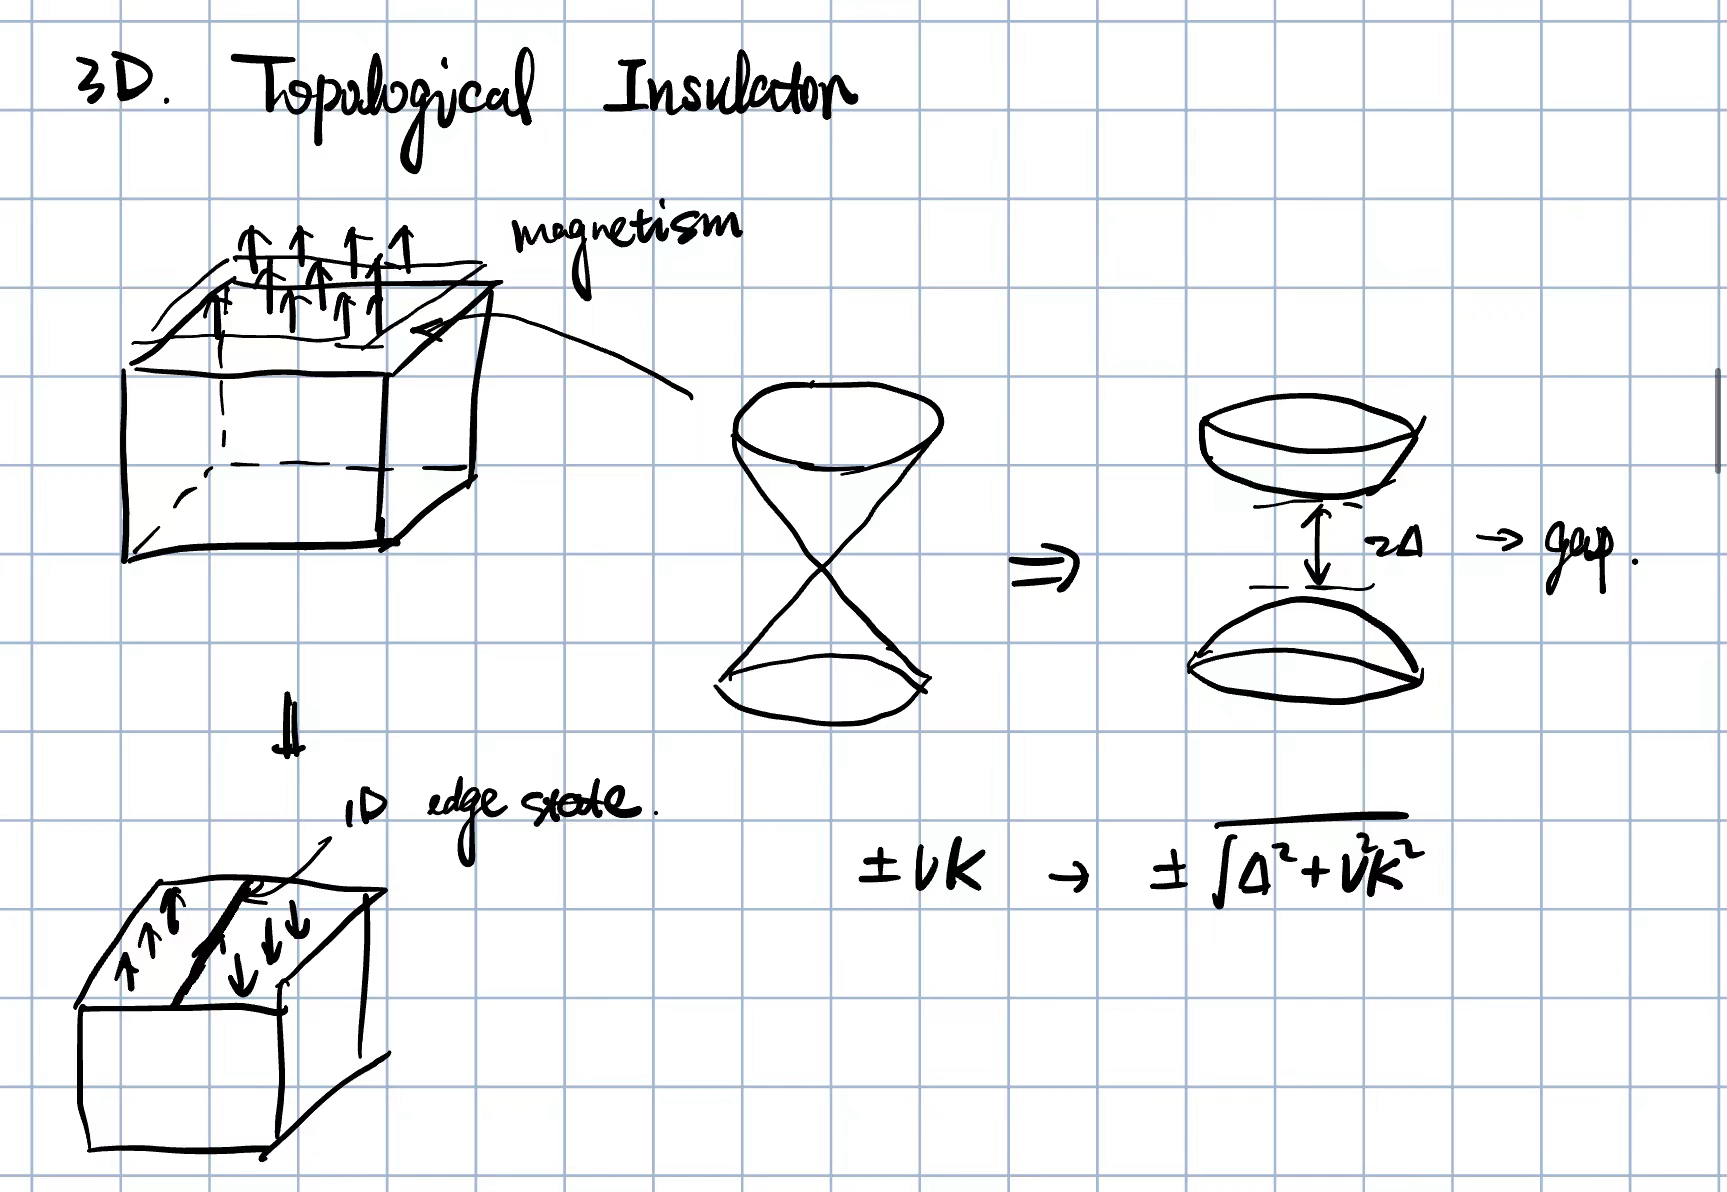 3D. Topological Insulator
magnetism
2Δ → gap.
1D edge state.
±vk → ±√Δ²+v²k²